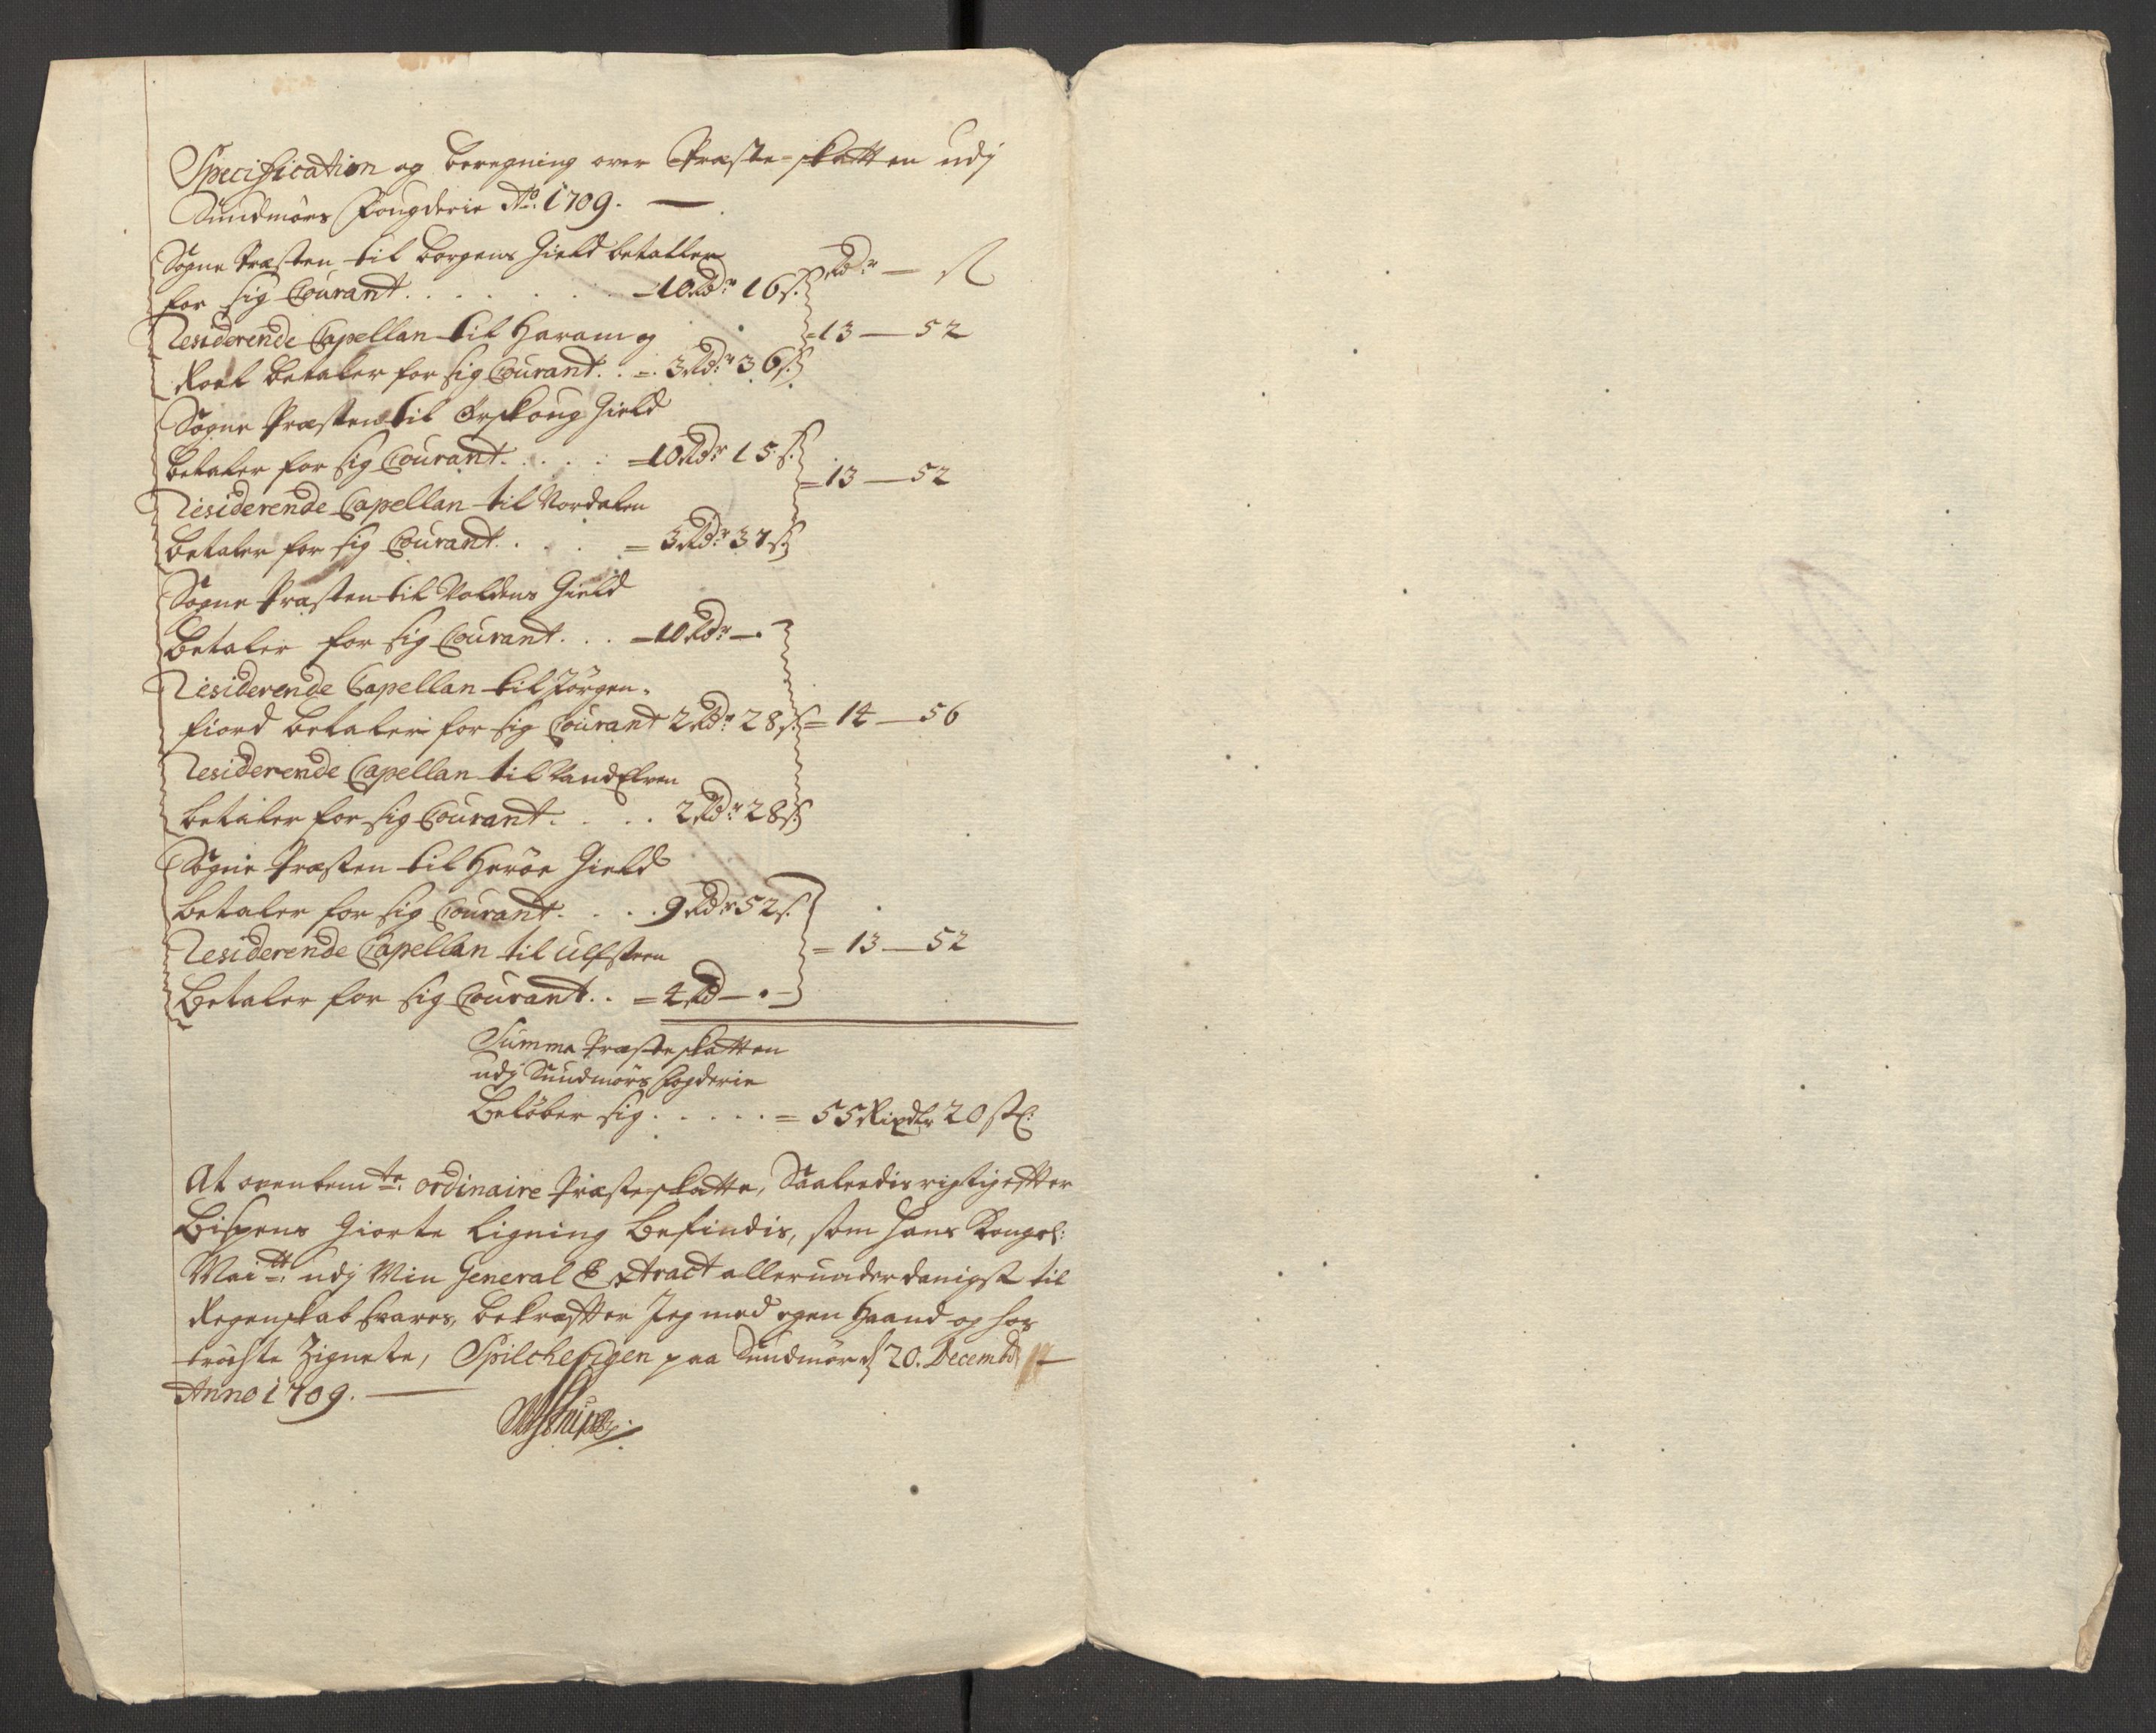 Specification og beregning over Præste-skatten udj
Sundmørs Fougderie Ao. 1709. —
Sogne Præsten til Borgens Gield betaller
for sig Courant . . . . . . – 10 Rdr 16 s. Rdr — s
Residerende Capellan til Haram og = 13 — 52
Roel betaler for sig Courant . . = 3 Rdr 36 s.
Sogne Præsten til Ørskoug Gield
betaler for sig Courant . . . . = 10 Rdr 15 s. = 13 — 52
Residerende Capellan til Nordalen
betaler for sig Courant . . . = 3 Rdr 37 s
Sogne Præsten til Voldens Gield
betaler for sig Courant . . . – 10 Rdr —.
Residerende Capellan til Jørgen-
fiord betaler for sig Courant 2 Rdr 28 s. = 14 — 56
Residerende Capellan til Vandelven
betaler for sig Courant . . . . 2 Rdr 28 s
Sogne Præsten til Herøe Gield
betaler for sig Courant . . . . 9 Rdr 52 s.
Residerende Capellan til Ulfsteen = 13 — 52
betaler for sig Courant . . = 4 Rd — . –
Summa Præsteskatten
udj Sundmørs Fogderie
beløber sig . . . . . = 55 Rixdlr 20 s
At ovenbemte. ordinaire Præsteskatte, Saaleedis rigtig efter
Bispens Giorte Ligning befindis, som hans Kongel:
Maitt. udj Min General Extract allerunderdanigst til
Regenskab føares, bekræfter Jeg med egen Haand og hos
tröchte Zignete, Spilchevigen paa Sundmør d 20. Decembr —
Anno 1709. —